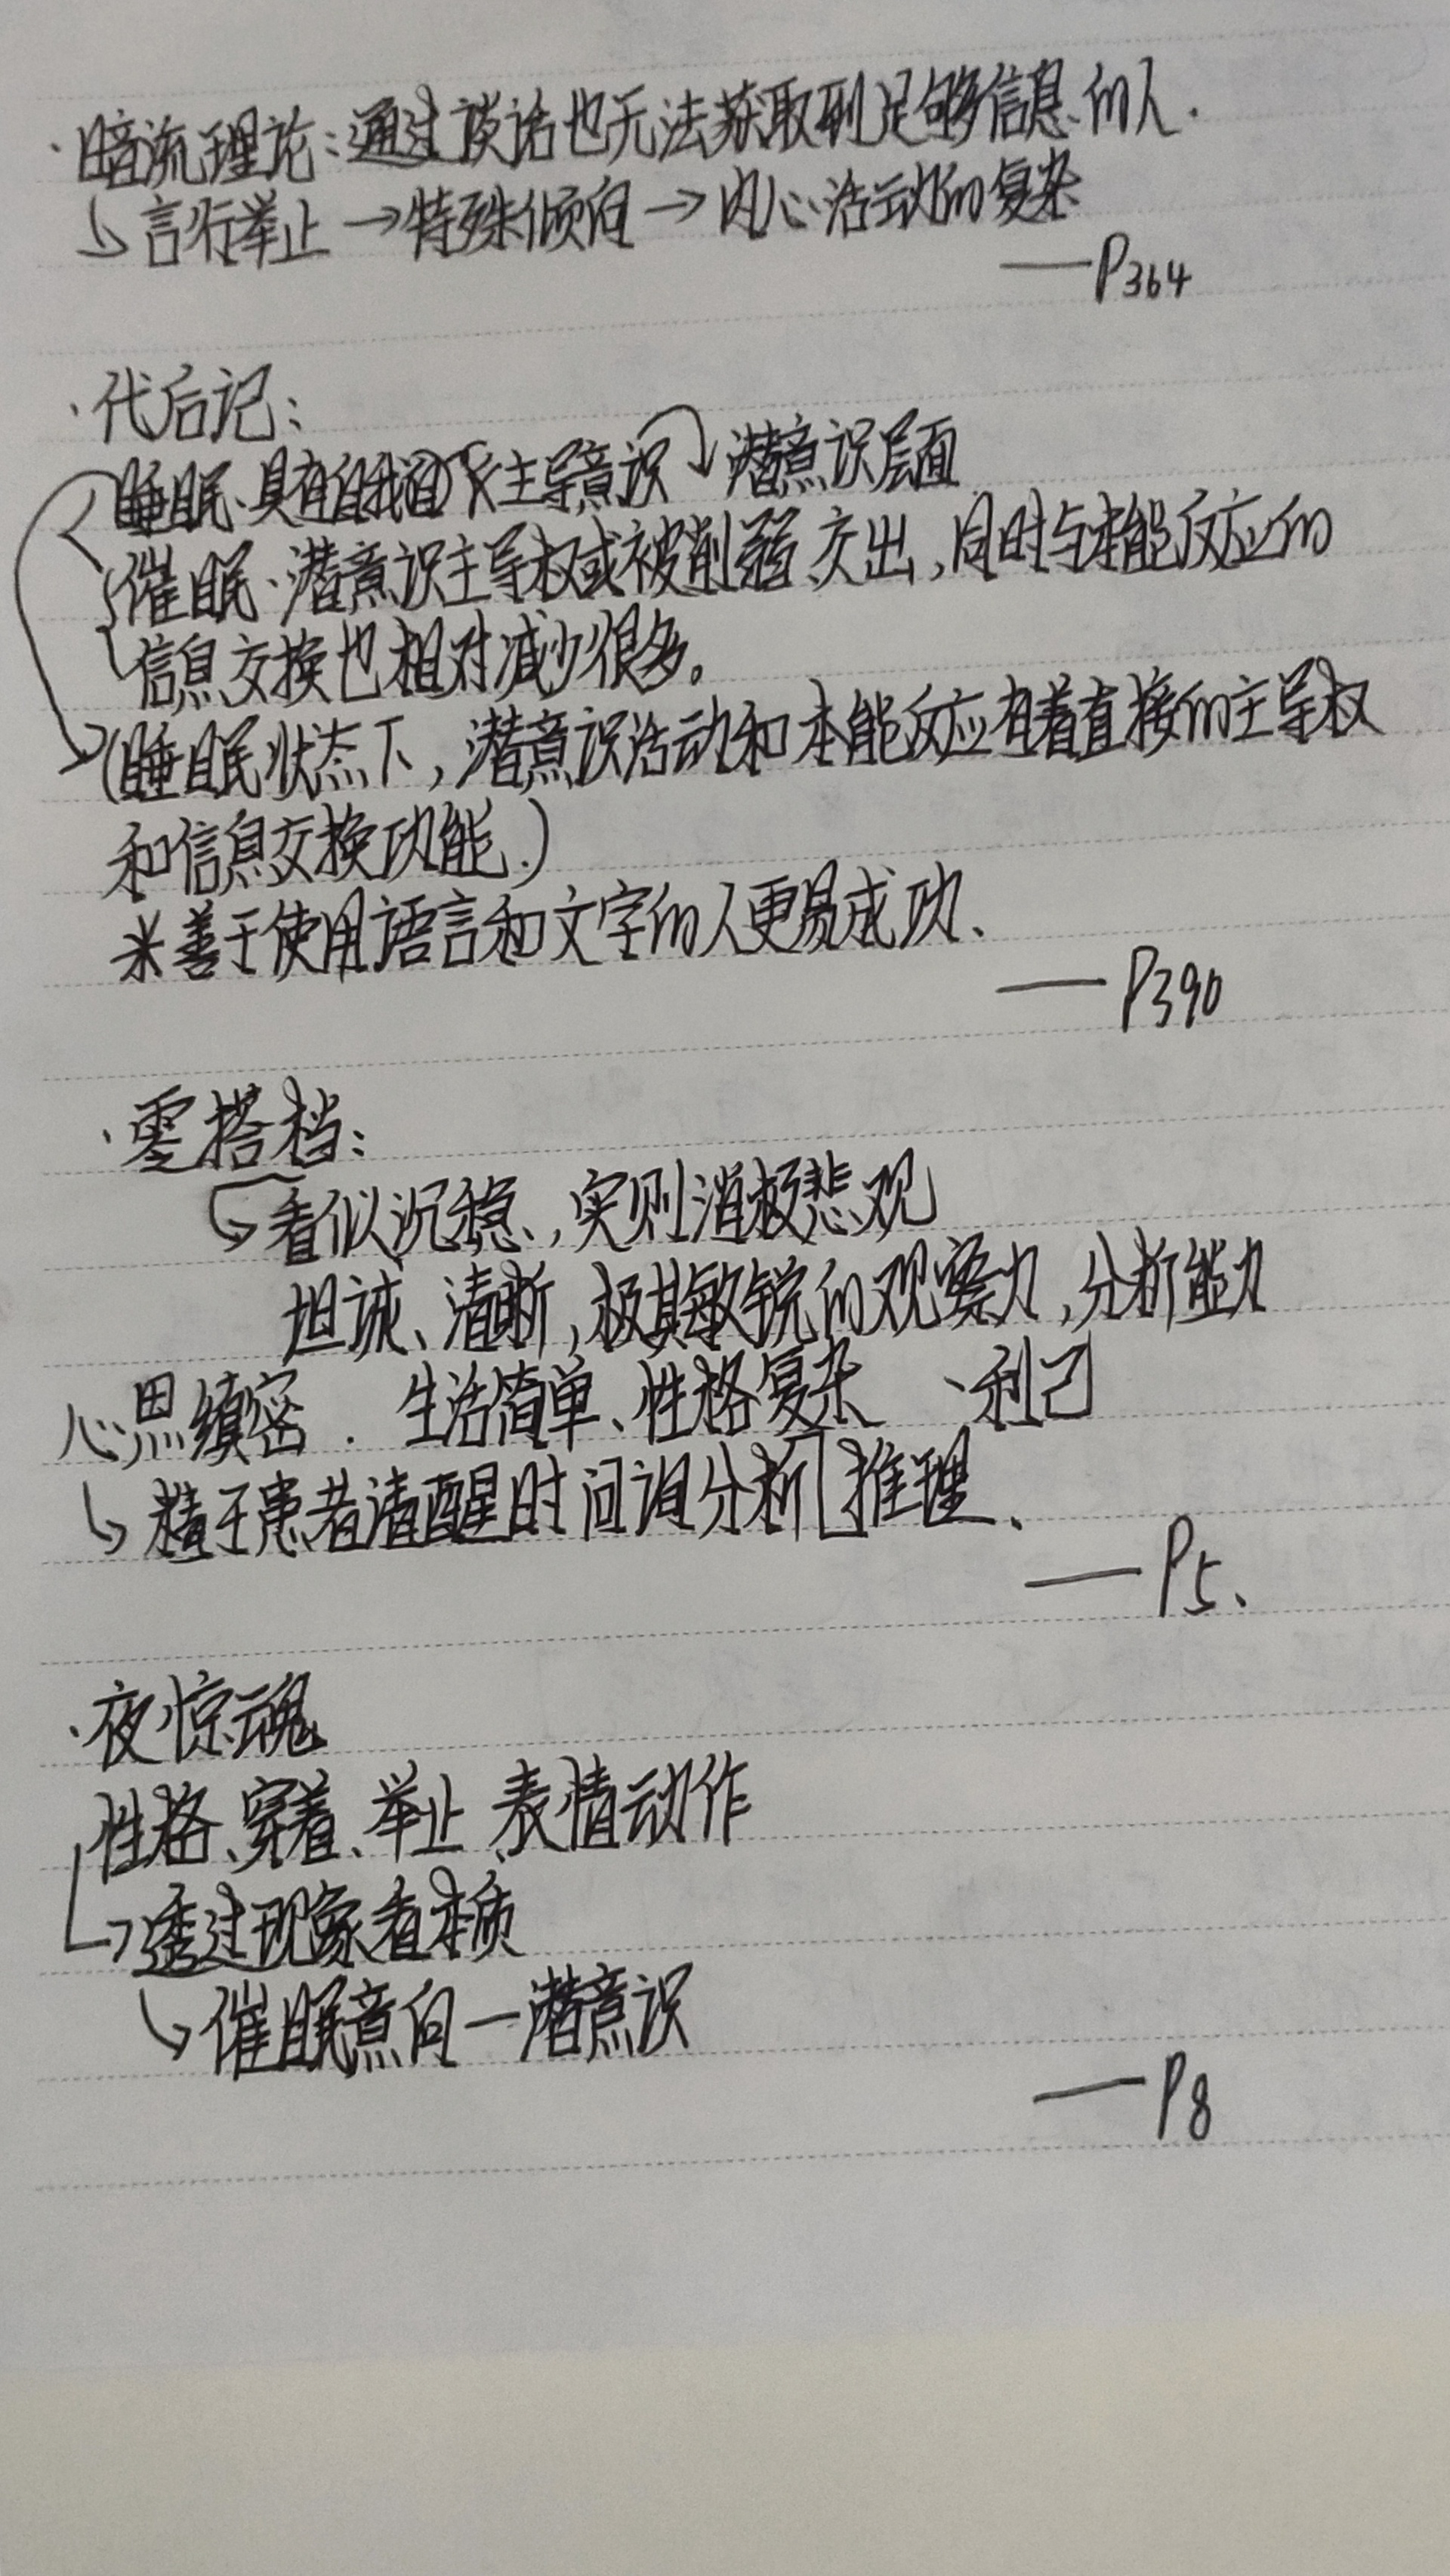 ·暗流理论：通过谈话也无法获取到足够信息的人.
↳言行举止→特殊倾向→内心活动的复杂
——P364
·代后记：
睡眠、具有自我 主导意识 潜意识层面
催眠·潜意识主导权或被削弱、交出，同时与本能反应的
信息交换也相对减少很多。
(睡眠状态下，潜意识活动和本能反应有着直接的主导权
和信息交换功能.)
米善于使用语言和文字的人更易成功、
——P390
·零搭档：
↳看似沉稳、，实则消极悲观
坦诚、清晰，极其敏锐的观察力，分析能力
心思缜密．生活简单、性格复杂 、利己
↳精于患者清醒时问询分析 推理、
——P5、
·夜惊魂
性格、穿着、举止、表情动作
→透过现象看本质
↳催眠意向—潜意识
——P8